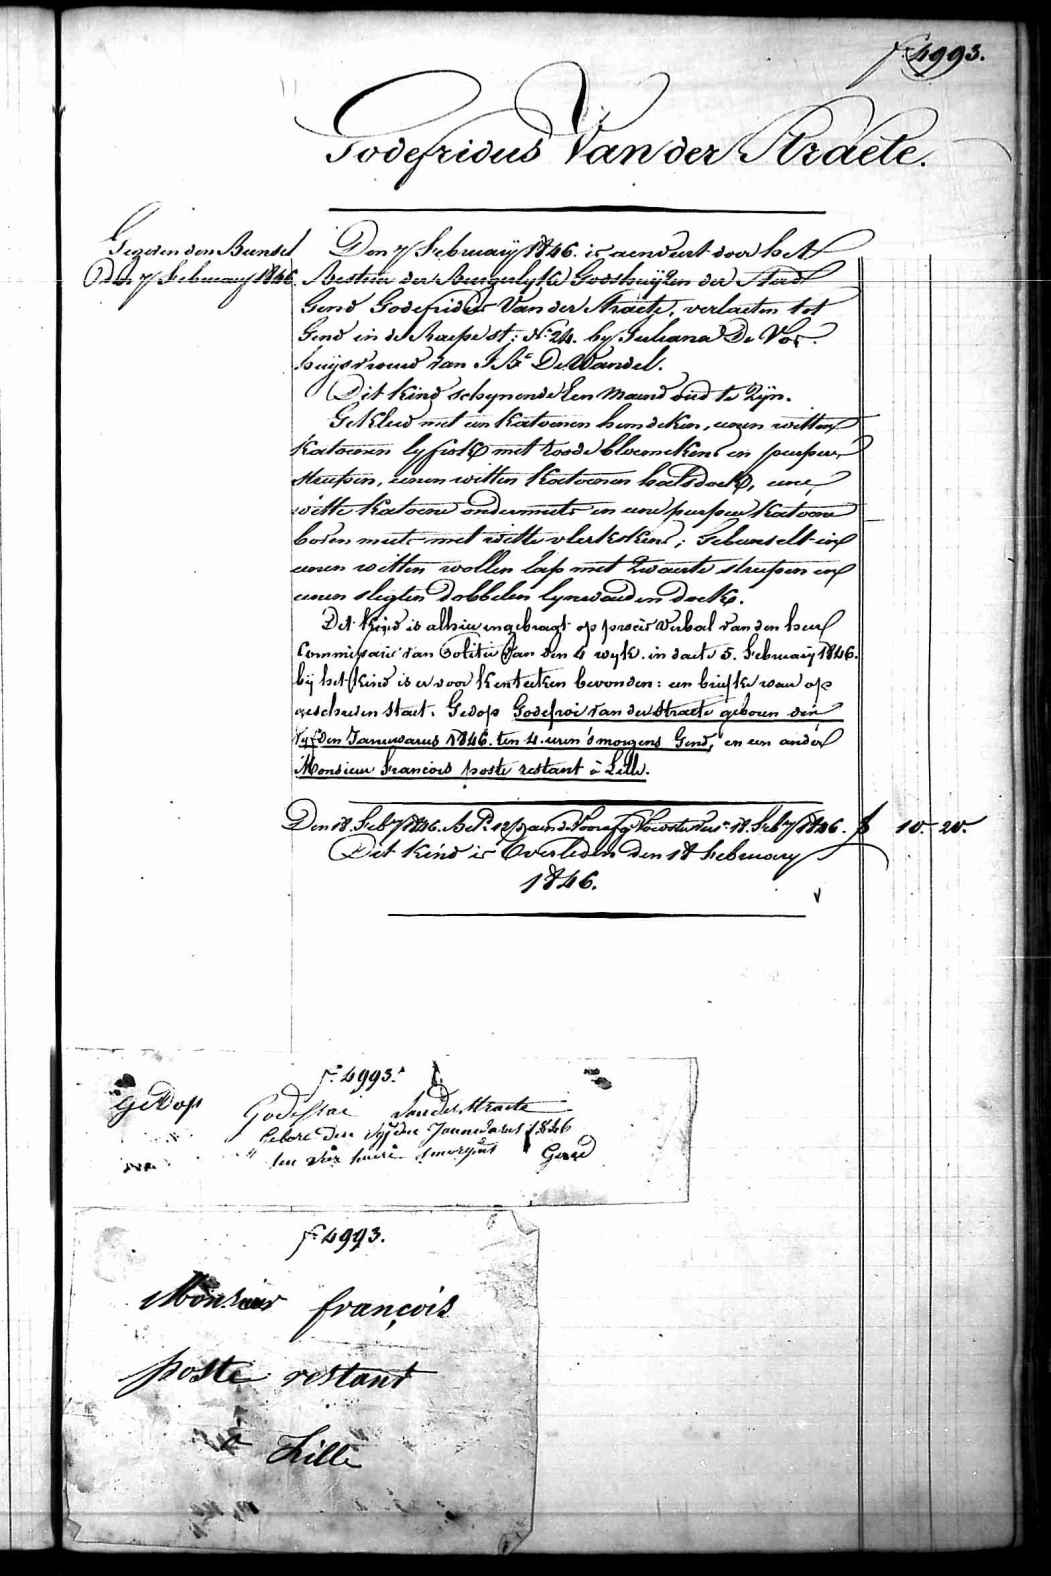 f° 4993.
Godefridus Van der Straete.
Gegeven den Bunsel
Den 7 february 1846.
Den 7 february 1846. is aenveert door het
Bestier der Burgerlyke Godshuijzen der Stad
Gend Godefridus Van der Straete, verlaeten tot
Gend in de Raepe st: N° 24. by Juliana De Vos.
huysvrouw van J. Bte De Wandel.
Dit kind schynende Een maend oud te zijn.
Gekleed met een katoenen hemdeken, eenen witten
katoenen lyfrok met roode bloemekens en purper,
streepen, eenen witten katoenen halsdoek, eene
witte katoene ondermuts en eene purper katoene
boven muts met witte vlekskens; Gebunselt in
eenen witten wollen lap met zwaerte streepen en
eenen slegten dobbelen lynwaeden doek.
Dit kind is alhier ingebragt op proces verbal van den heer
Commissaris van Politie van den 4 wyk. in date 5. february 1846.
bij het kind is er voor kenteeken bevonden: een briefke waer op
geschreven staet. Gedop Godefroi van der Straete geboren den
vyfden Januwarus 1846. ten 4. uren 's morgens Gend, en een ander
Monsieur francois poste restant à Lille.
Den 18. feby 1846. Bet. 18. feby 1846. f 10. 20.
Dit kind is Overleden den 18 february
1846.
f° 4993.
geDop Godefrae Vander Straete
Gebore Den vyfden Januwarus 1846
ten vier huere smorgens Gend
f° 4993.
Monsieur françois
poste restant
à Lille